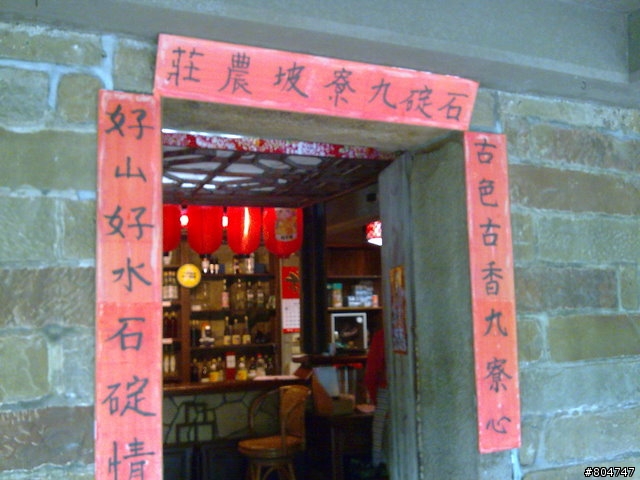 石碇九寮坡農莊
古色古香九寮心
好山好水石碇情
#804747